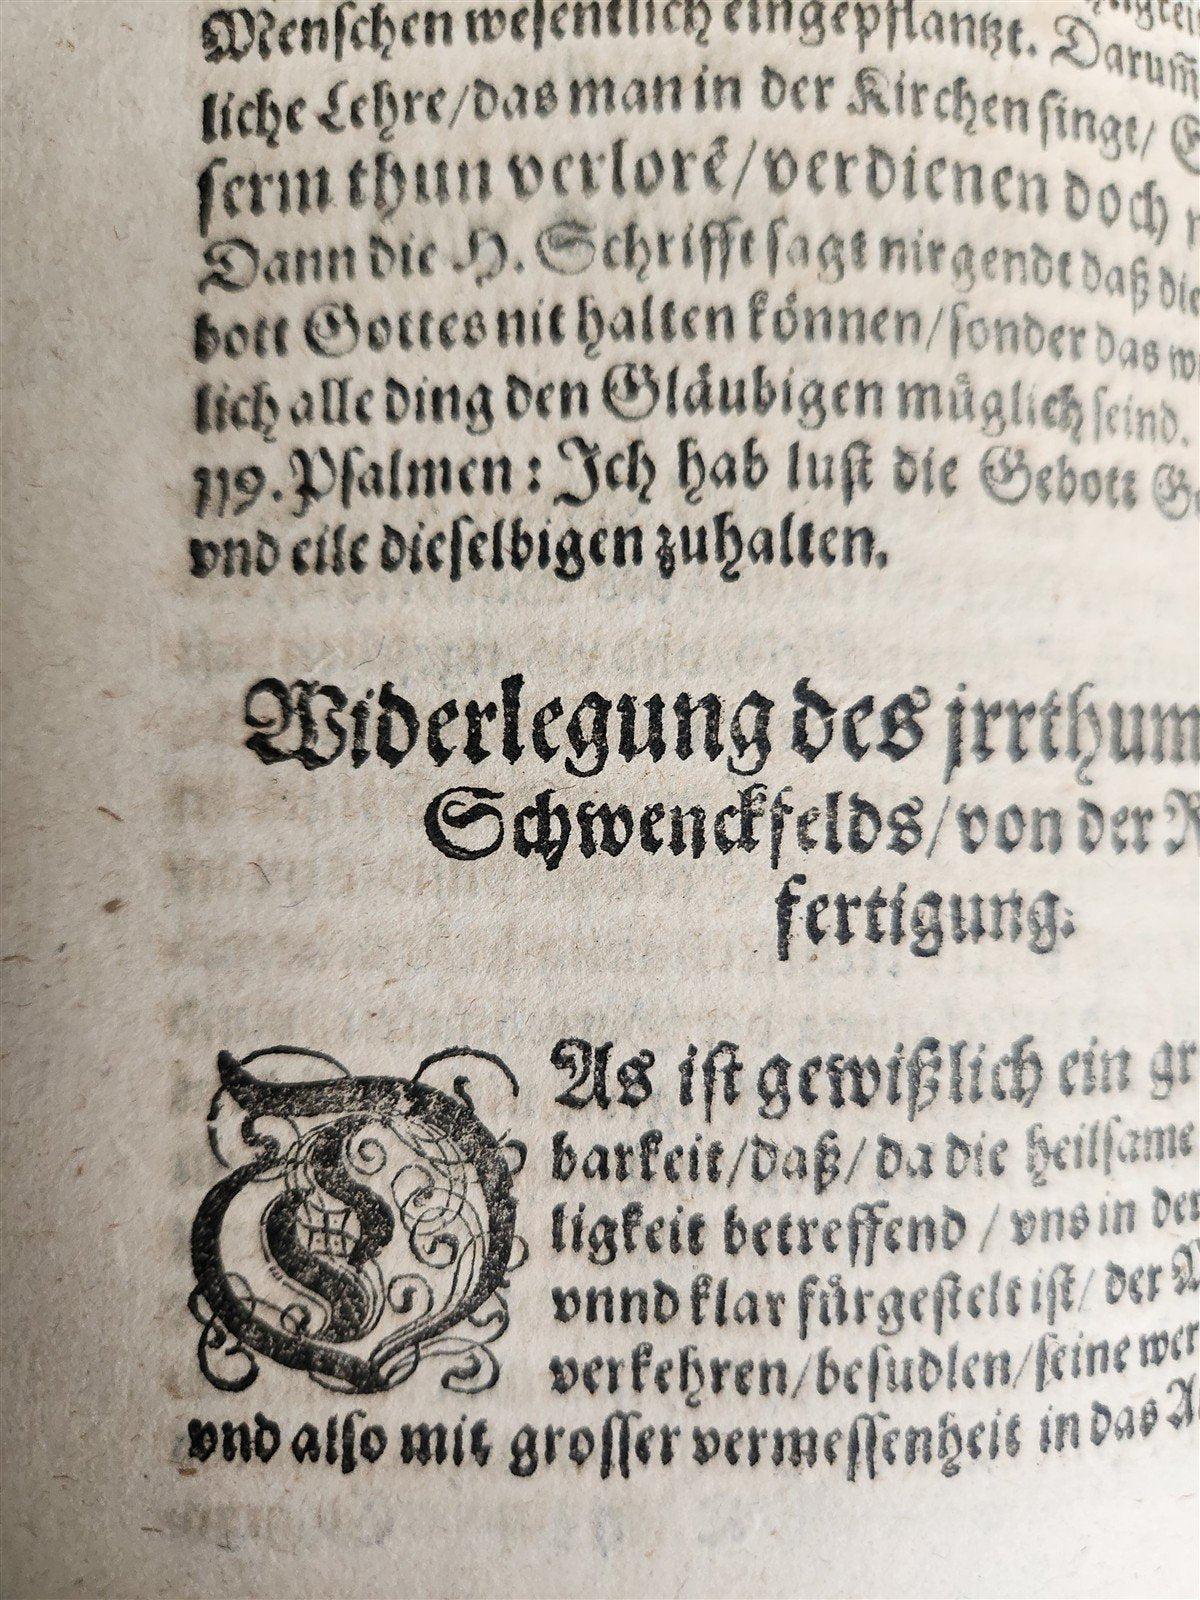 Menschen wesentlich eingepflantzt. Darum̃
liche Lehre/das man in der Kirchen singt/
serm thun verlorẽ/verdienen doch
Dann die H. Schrifft sagt nirgendt daß die
bott Gottes nit halten können/sonder das
lich alle ding den Gläubigen müglich seind.
119. Psalmen: Ich hab lust die Gebott
vnd eile dieselbigen zuhalten.
Widerlegung des jrrthum
Schwenckfelds/von der R
fertigung.
DAs ist gewißlich ein gr
barkeit/daß/da die heilsame
ligkeit betreffend/vns in der
vnnd klar fürgestelt ist/der
verkehren/besudlen/seine wer
vnd also mit grosser vermessenheit in das A